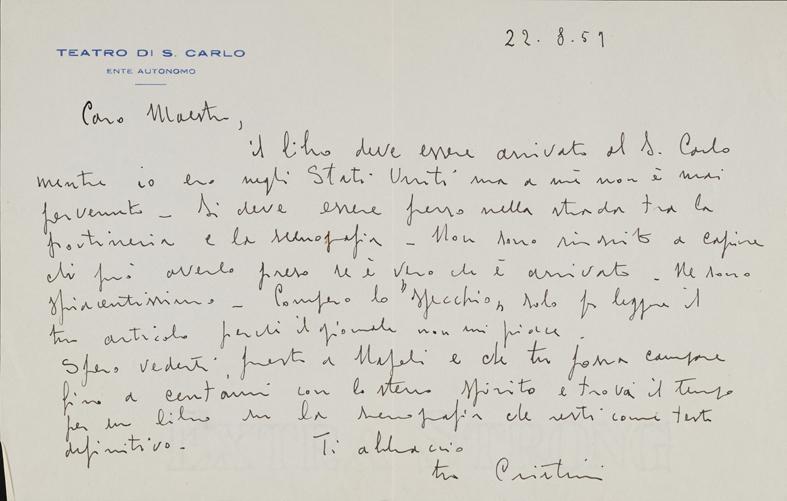 TEATRO DI S. CARLO
ENTE AUTONOMO
22. 8. 59
Caro Maestro,
il libro deve essere arrivato al S. Carlo
mentre io ero negli Stati Uniti ma a me non è mai
pervenuto - Si deve essere perso nella strada tra la
portineria e la scenografia - Non sono riuscito a capire
chi può averlo preso se è vero che è arrivato - Ne sono
spiacentissimo - Compero lo "specchio" solo per leggere il
tuo articolo perchè il giornale non mi piace.
Spero vederti presto a Napoli e che tu possa campare
fino a cent'anni con lo stesso spirito e trovi il tempo
per un libro su la scenografia che resti come testo
definitivo.
Ti abbraccio
tuo Cristini